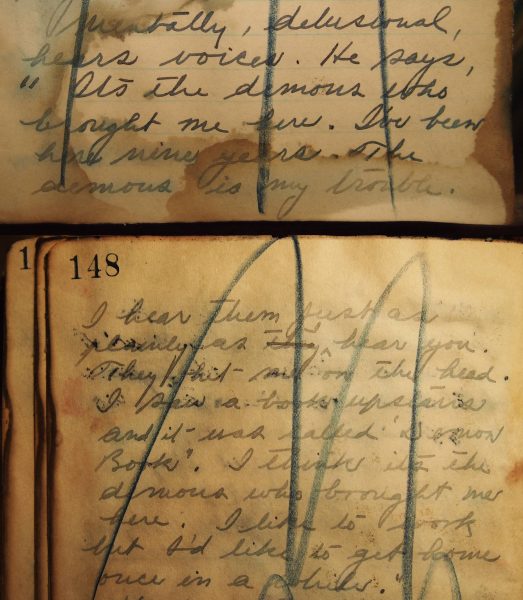 Mentally, delusional,
hears voices. He says,
" Its the demons who
brought me here. I've been
here nine years. The
demons is my trouble.
1
148
I hear them just as
plainly as they hear you.
They hit me on the head.
I saw a book upstairs
and it was called 'Demon
Book'. I think its the
demons who brought me
here. I like to work
but I'd like to get home
once in a while."